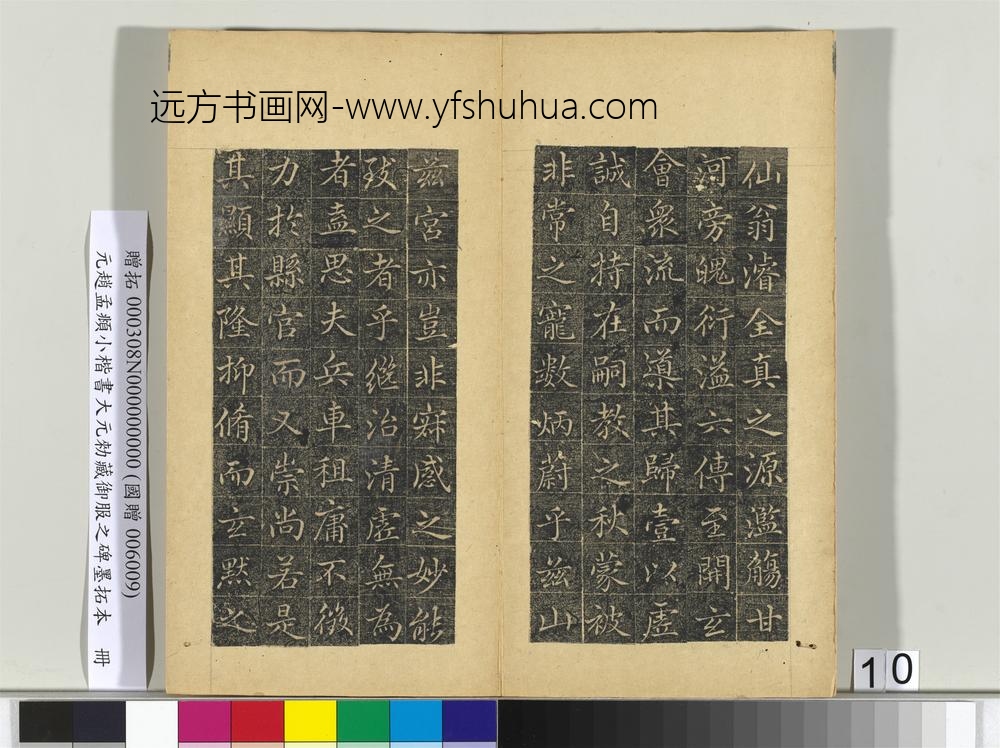 远方书画网-www.yfshuhua.com
仙翁濬全真之源濫觴甘
河旁魄衍溢六傳至開玄
會衆流而導其歸壹以虛
誠自持在嗣教之秋蒙被
非常之寵数炳蔚乎茲山
茲宮亦豈非寂感之妙能
致之者乎繼治清虛無為
者盍思夫兵車租庸不徵
力扵縣官而又崇尚若是
其顯其隆抑脩而玄默之
贈拓 000308N000000000 (國贈 006009)
元趙孟頫小楷書大元勑藏御服之碑墨拓本 冊
10